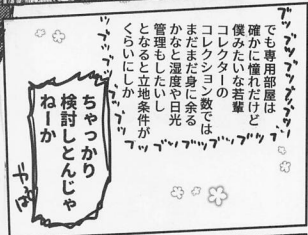 でも専用部屋は
確かに憧れだけど
僕みたいな若輩
コレクターの
コレクション数では
まだまだ身に余る
かなと湿度や日光
管理もしたいし
となると立地条件が
くらいにしか
ブツブツブツブツブツブツブツブツブツブツ
ちゃっかり
検討しとんじゃ
ねーか